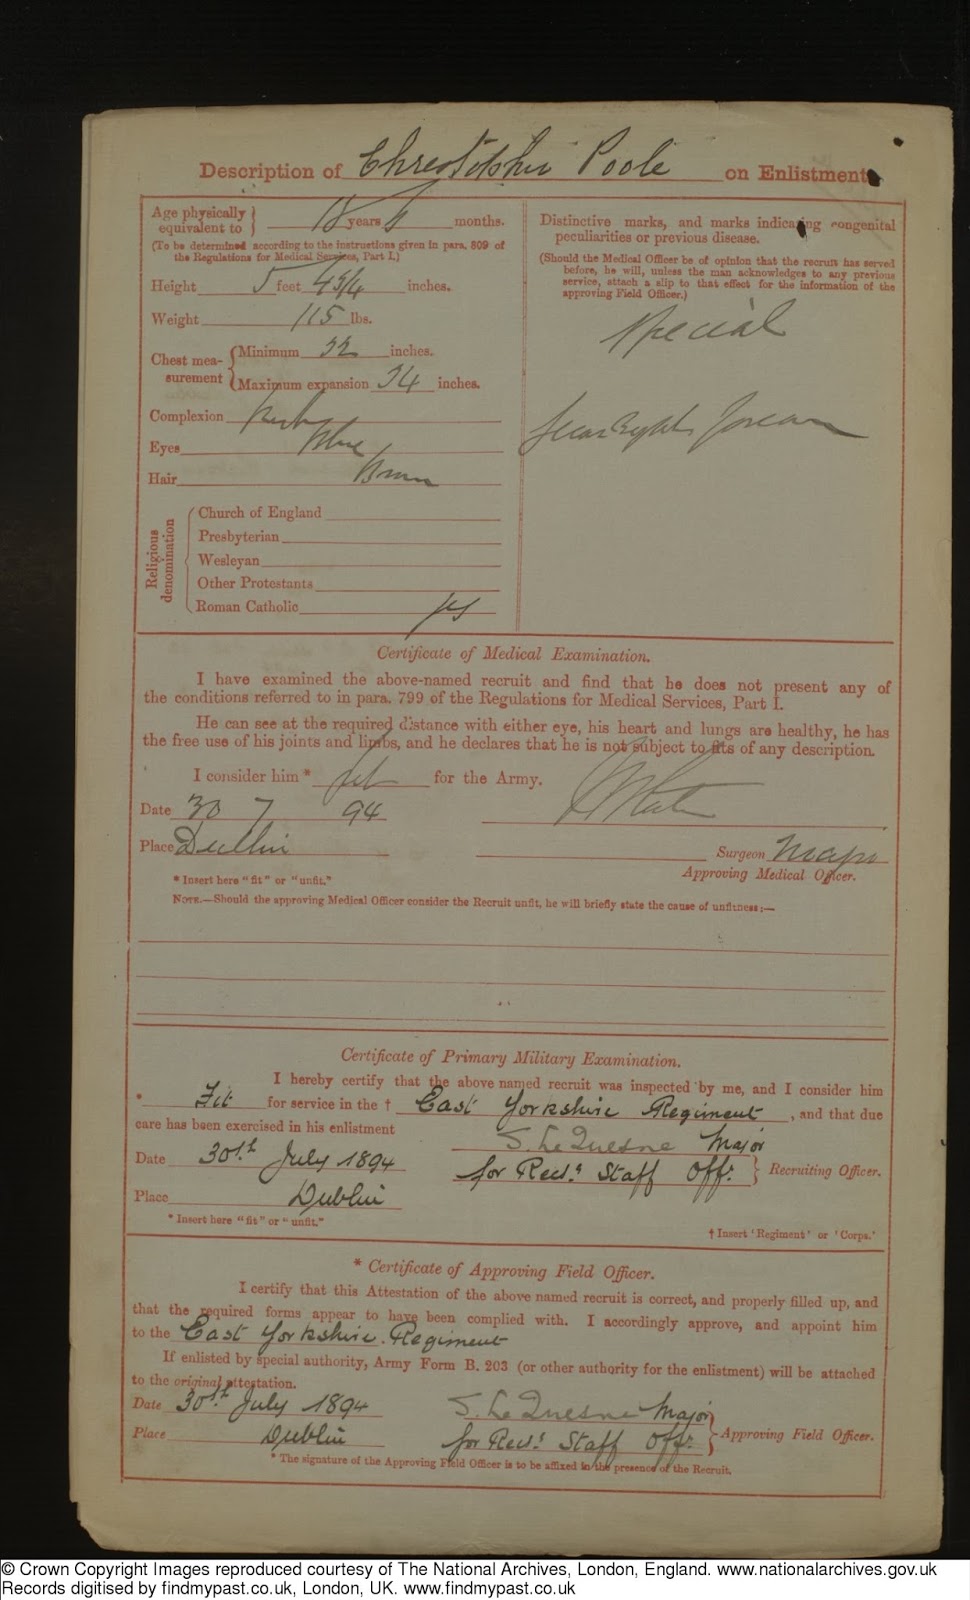 Description of Christopher Poole on Enlistment.
Age physically equivalent to } 18 years months.
(To be determined according to the instructions given in para. 809 of
the Regulations for Medical Services, Part I.)
Height 5 feet 4 3/4 inches.
Weight 115 lbs.
Chest mea-
surement { Minimum 32 inches.
Maximum expansion 34 inches.
Complexion Fresh
Eyes Blue
Hair Brown
Religious denomination
Church of England
Presbyterian
Wesleyan
Other Protestants
Roman Catholic yes
Distinctive marks, and marks indicating congenital
peculiarities or previous disease.
(Should the Medical Officer be of opinion that the recruit has served
before, he will, unless the man acknowledges to any previous
service, attach a slip to that effect for the information of the
approving Field Officer.)
Special
Certificate of Medical Examination.
I have examined the above-named recruit and find that he does not present any of
the conditions referred to in para. 799 of the Regulations for Medical Services, Part I.
He can see at the required distance with either eye, his heart and lungs are healthy, he has
the free use of his joints and limbs, and he declares that he is not subject to fits of any description.
I consider him * fit for the Army.
Date 30 7 94
Place Dublin
Surgeon Major
Approving Medical Officer.
* Insert here "fit" or "unfit."
NOTE.—Should the approving Medical Officer consider the Recruit unfit, he will briefly state the cause of unfitness:—
Certificate of Primary Military Examination.
I hereby certify that the above named recruit was inspected by me, and I consider him
* Fit for service in the † East Yorkshire Regiment, and that due
care has been exercised in his enlistment
S. Le Quesne Major
Date 30th July 1894
for Recg. Staff Offr. } Recruiting Officer.
Place Dublin
* Insert here "fit" or "unfit."
† Insert 'Regiment' or 'Corps.'
* Certificate of Approving Field Officer.
I certify that this Attestation of the above named recruit is correct, and properly filled up, and
that the required forms appear to have been complied with. I accordingly approve, and appoint him
to the East Yorkshire Regiment
If enlisted by special authority, Army Form B. 203 (or other authority for the enlistment) will be attached
to the original attestation.
Date 30th July 1894
S. Le Quesne Major
Place Dublin
for Recg. Staff Offr. } Approving Field Officer.
* The signature of the Approving Field Officer is to be affixed in the presence of the Recruit.
© Crown Copyright Images reproduced courtesy of The National Archives, London, England. www.nationalarchives.gov.uk
Records digitised by findmypast.co.uk, London, UK. www.findmypast.co.uk